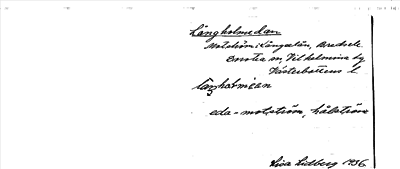 Långholmedan
Motström i Långselån, Bredsele
Norra m, Vilhelmina sn
Västerbottens l
långholmöan
eda = motström, hålström
Lisa Lidberg 1936